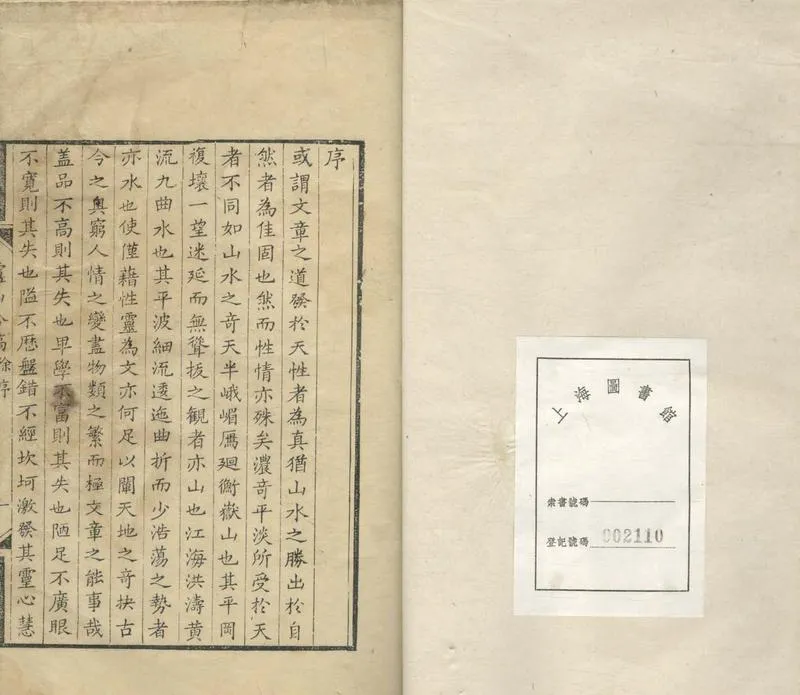 序
或謂文章之道發於天性者為真猶山水之勝出於自
然者為佳固也然而性情亦殊矣濃奇平淡所受於天
者不同如山水之奇天半峨嵋鴈廻衡嶽山也其平岡
複壤一望迷延而無聳拔之觀者亦山也江海洪濤黃
流九曲水也其平波細流透迤曲折而少浩蕩之勢者
亦水也使僅藉性靈為文亦何足以闡天地之奇抉古
今之奧窮人情之變盡物類之繁而極文章之能事哉
盖品不高則其失也卑學不富則其失也陋足不廣眼
不寬則其失也隘不歷盤錯不經坎坷激發其靈心慧
徐序
一
上海圖書館
索書號碼
登記號碼 902110